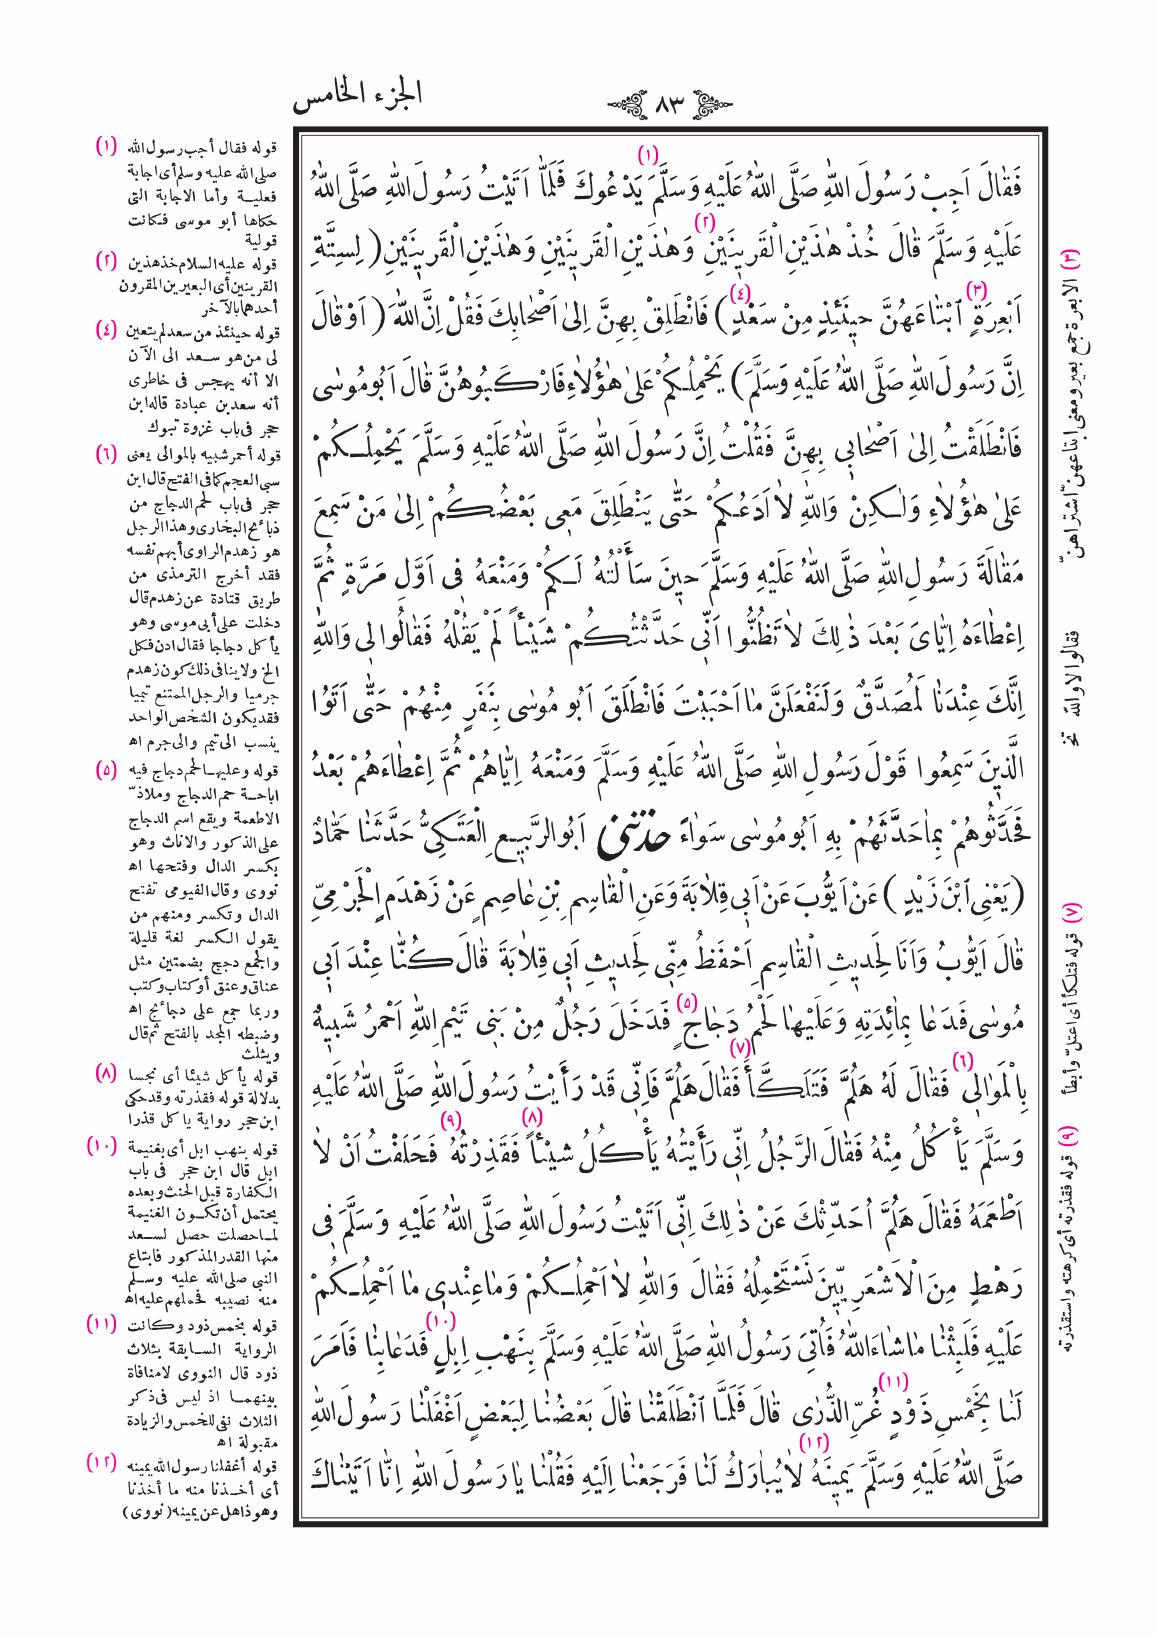 الجزء الخامس
٨٣
فَقَالَ اَجِبْ رَسُولَ اللهِ صَلَّى اللهُ عَلَيْهِ وَسَلَّمَ (١) يَدْعُوكَ فَلَمَّا اَتَيْتُ رَسُولَ اللهِ صَلَّى اللهُ
عَلَيْهِ وَسَلَّمَ قَالَ خُذْ هٰذَيْنِ الْقَرِينَيْنِ (٢) وَهٰذَيْنِ الْقَرِينَيْنِ وَهٰذَيْنِ الْقَرِينَيْنِ ( لِسِتَّةِ
اَبْعِرَةٍ (٣) ٱبْتَاعَهُنَّ حِينَئِذٍ مِنْ سَعْدٍ (٤) ) فَانْطَلِقْ بِهِنَّ اِلىٰ اَصْحَابِكَ فَقُلْ اِنَّ اللهَ ( اَوْ قَالَ
اِنَّ رَسُولَ اللهِ صَلَّى اللهُ عَلَيْهِ وَسَلَّمَ ) يَحْمِلُكُمْ عَلىٰ هٰؤُلَاءِ فَارْكَبُوهُنَّ قَالَ اَبُو مُوسٰى
فَانْطَلَقْتُ اِلىٰ اَصْحَابِي بِهِنَّ فَقُلْتُ اِنَّ رَسُولَ اللهِ صَلَّى اللهُ عَلَيْهِ وَسَلَّمَ يَحْمِلُكُمْ
عَلىٰ هٰؤُلَاءِ وَلٰكِنْ وَاللهِ لَا اَدَعُكُمْ حَتّٰى يَنْطَلِقَ مَعِي بَعْضُكُمْ اِلىٰ مَنْ سَمِعَ
مَقَالَةَ رَسُولِ اللهِ صَلَّى اللهُ عَلَيْهِ وَسَلَّمَ حِينَ سَأَلْتُهُ لَكُمْ وَمَنْعَهُ فِي اَوَّلِ مَرَّةٍ ثُمَّ
اِعْطَاءَهُ اِيَّايَ بَعْدَ ذٰلِكَ لَا تَظُنُّوا اَنِّي حَدَّثْتُكُمْ شَيْئاً لَمْ يَقُلْهُ فَقَالُوا لِي وَاللهِ
اِنَّكَ عِنْدَنَا لَمُصَدَّقٌ وَلَنَفْعَلَنَّ مَا اَحْبَبْتَ فَانْطَلَقَ اَبُو مُوسٰى بِنَفَرٍ مِنْهُمْ حَتّٰى اَتَوُا
الَّذِينَ سَمِعُوا قَوْلَ رَسُولِ اللهِ صَلَّى اللهُ عَلَيْهِ وَسَلَّمَ وَمَنْعَهُ اِيَّاهُمْ ثُمَّ اِعْطَاءَهُمْ بَعْدُ
فَحَدَّثُوهُمْ بِمَا حَدَّثَهُمْ بِهِ اَبُو مُوسٰى سَوَاءً حدثنى اَبُو الرَّبِيعِ الْعَتَكِيُّ حَدَّثَنَا حَمَّادٌ
( يَعْنِي ٱبْنَ زَيْدٍ ) عَنْ اَيُّوبَ عَنْ اَبِي قِلَابَةَ وَعَنِ الْقَاسِمِ بْنِ عَاصِمٍ عَنْ زَهْدَمٍ الْجَرْمِيِّ
قَالَ اَيُّوبُ وَاَنَا لِحَدِيثِ الْقَاسِمِ اَحْفَظُ مِنِّي لِحَدِيثِ اَبِي قِلَابَةَ قَالَ كُنَّا عِنْدَ اَبِي
مُوسٰى فَدَعَا بِمَائِدَتِهِ وَعَلَيْهَا لَحْمُ دَجَاجٍ (٥) فَدَخَلَ رَجُلٌ مِنْ بَنِي تَيْمِ اللهِ اَحْمَرُ شَبِيهٌ
بِالْمَوَالِي (٦) فَقَالَ لَهُ هَلُمَّ فَتَلَكَّأَ (٧) فَقَالَ هَلُمَّ فَاِنِّي قَدْ رَأَيْتُ رَسُولَ اللهِ صَلَّى اللهُ عَلَيْهِ
وَسَلَّمَ يَأْكُلُ مِنْهُ فَقَالَ الرَّجُلُ اِنِّي رَأَيْتُهُ يَأْكُلُ شَيْئاً (٨) فَقَذِرْتُهُ (٩) فَحَلَفْتُ اَنْ لَا
اَطْعَمَهُ فَقَالَ هَلُمَّ اُحَدِّثْكَ عَنْ ذٰلِكَ اِنِّي اَتَيْتُ رَسُولَ اللهِ صَلَّى اللهُ عَلَيْهِ وَسَلَّمَ فِي
رَهْطٍ مِنَ الْاَشْعَرِيِّينَ نَسْتَحْمِلُهُ فَقَالَ وَاللهِ لَا اَحْمِلُكُمْ وَمَا عِنْدِي مَا اَحْمِلُكُمْ
عَلَيْهِ فَلَبِثْنَا مَا شَاءَ اللهُ فَاُتِيَ رَسُولُ اللهِ صَلَّى اللهُ عَلَيْهِ وَسَلَّمَ بِنَهْبِ اِبِلٍ (١٠) فَدَعَا بِنَا فَاَمَرَ
لَنَا بِخَمْسِ ذَوْدٍ (١١) غُرِّ الذُّرٰى قَالَ فَلَمَّا ٱنْطَلَقْنَا قَالَ بَعْضُنَا لِبَعْضٍ اَغْفَلْنَا رَسُولَ اللهِ
صَلَّى اللهُ عَلَيْهِ وَسَلَّمَ يَمِينَهُ (١٢) لَا يُبَارَكُ لَنَا فَرَجَعْنَا اِلَيْهِ فَقُلْنَا يَا رَسُولَ اللهِ اِنَّا اَتَيْنَاكَ
(٣) الابعرة جمع بعير ومعنى ابتاعهنّ اشتراهنّ
فقالوا لا والله نخ
(٧) قوله فتلكأ أى اعتلّ وأبطأ
(٩) قوله فقذرته أى كرهته واستقذرته
(١) قوله فقال أجب رسول الله
صلى الله عليه وسلم أى اجابة
فعليــة وأما الاجابة التى
حكاها أبو موسى فكانت
قولية
(٢) قوله عليه السلام خذ هذين
القرينين أى البعيرين المقرون
أحدهما بالآخر
(٤) قوله حينئذ من سعد لم يتعين
لى من هو سعد الى الآن
الا أنه يهجس فى خاطرى
أنه سعد بن عبادة قاله ابن
حجر فى باب غزوة تبوك
(٦) قوله أحمر شبيه بالموالى يعنى
سبى العجم كما فى الفتح قال ابن
حجر فى باب لحم الدجاج من
ذبائح البخارى وهذا الرجل
هو زهدم الراوى أبهم نفسه
فقد أخرج الترمذى من
طريق قتادة عن زهدم قال
دخلت على أبى موسى وهو
يأكل دجاجا فقال ادن فكل
الخ ولا ينافى ذلك كون زهدم
جرميا والرجل الممتنع تيميا
فقد يكون الشخص الواحد
ينسب الى تيم والى جرم اه
(٥) قوله وعليها لحم دجاج فيه
اباحــة لحم الدجاج وملاذّ
الاطعمة ويقع اسم الدجاج
على الذكور والاناث وهو
بكسر الدال وفتحها اه
نووى وقال الفيومى تفتح
الدال وتكسر ومنهم من
يقول الكسر لغة قليلة
والجمع دجج بضمتين مثل
عناق وعنق أو كتاب وكتب
وربما جمع على دجائج اه
وضبطه المجد بالفتح ثم قال
ويثلث
(٨) قوله يأكل شيئا أى نجسا
بدلالة قوله فقذرته وقد حكى
ابن حجر رواية يأكل قذرا
(١٠) قوله بنهب ابل أى بغنيمة
ابل قال ابن حجر فى باب
الكفارة قبل الحنث وبعده
يحتمل أن تكون الغنيمة
لما حصلت حصل لسعد
منها القدر المذكور فابتاع
النبى صلى الله عليه وسلم
منه نصيبه فحملهم عليه اه
(١١) قوله بخمس ذود وكانت
الرواية السابقة بثلاث
ذود قال النووى لا منافاة
بينهما اذ ليس فى ذكر
الثلاث نفى للخمس والزيادة
مقبولة اه
(١٢) قوله أغفلنا رسول الله يمينه
أى أخذنا منه ما أخذنا
وهو ذاهل عن يمينه (نووى)